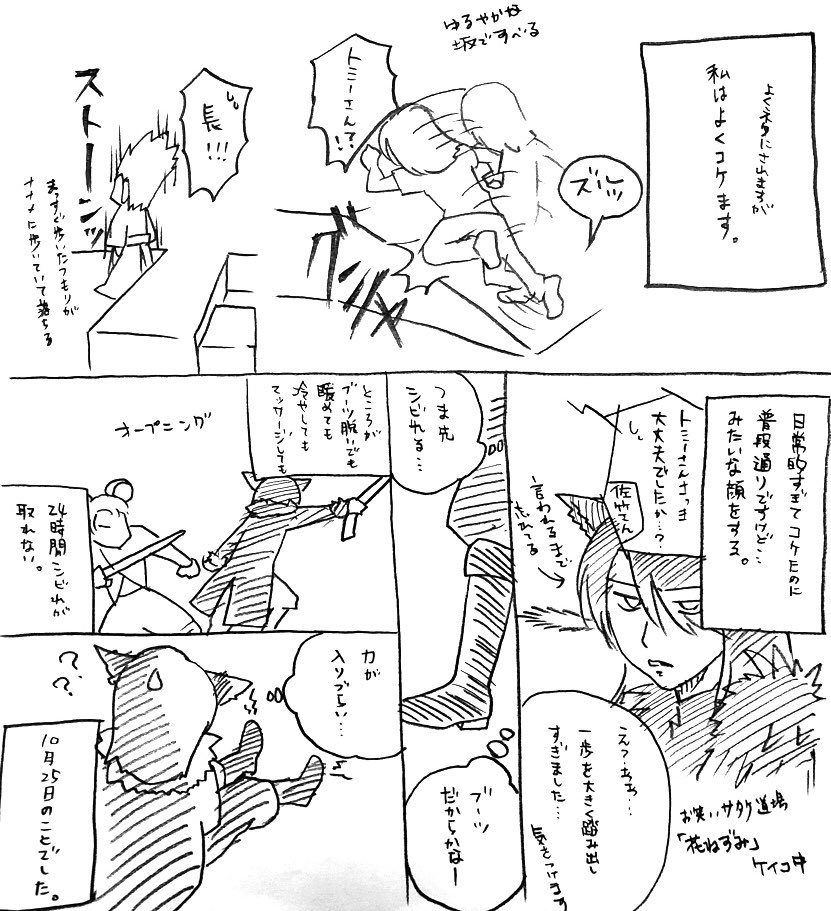 よくネタにされますが
私はよくコケます。
ゆるやかな
坂ですべる
ズルッ
トミーさん!?
ズシャ
し。
長!!!
ストーン
まっすぐ歩いたつもりが
ナナメに歩いていて落ちる
日常的すぎてコケたのに
普段通りですけど…
みたいな顔をする。
トミーさんさっき
大丈夫でしたか…?
し。
佐竹さん
言われるまで
忘れてる
えっああ…
一歩を大きく踏み出し
すぎました…
気をつけます
お笑いサタケ道場
「花ねずみ」
ケイコ中
つま先
シビれる…
ブーツ
だからかなー
ところが
ブーツ脱いでも
暖めても
冷やしても
マッサージしても
オープニング
24時間シビれが
取れない。
力が
入りづらい…
??
10月25日のことでした。